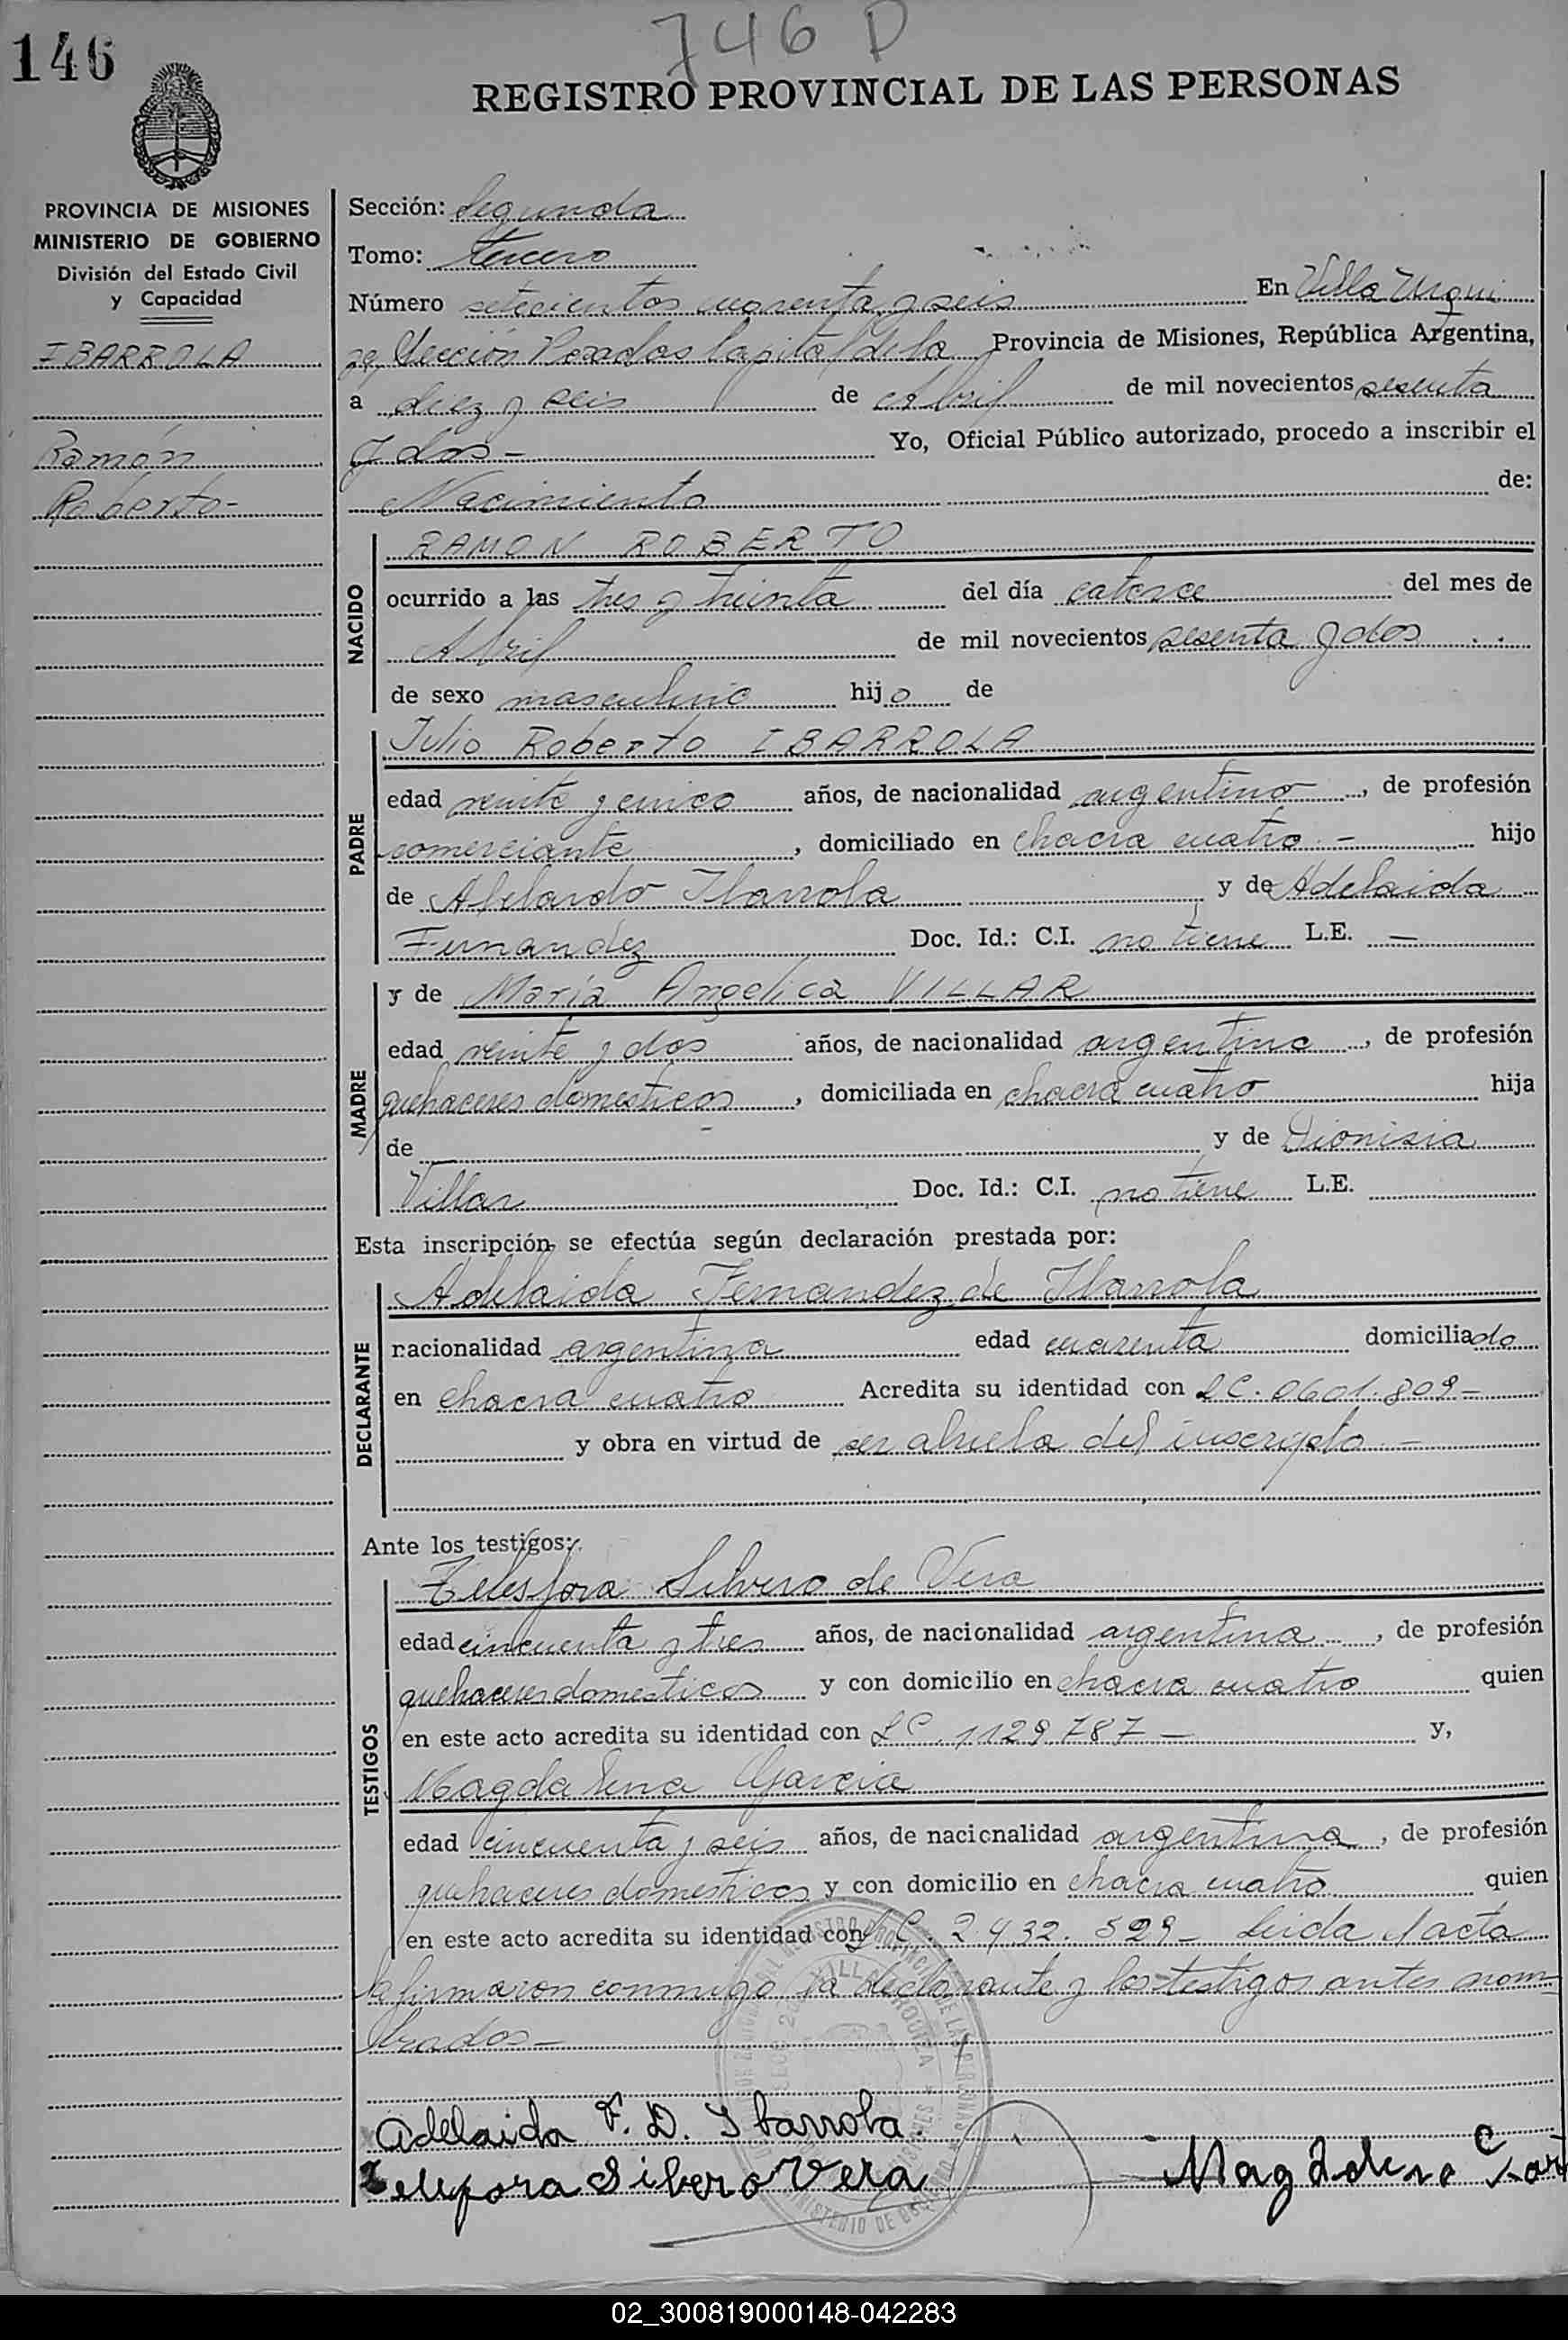 746 D
146
REGISTRO PROVINCIAL DE LAS PERSONAS
PROVINCIA DE MISIONES
MINISTERIO DE GOBIERNO
División del Estado Civil
y Capacidad
IBARROLA
Ramón
Roberto-
Sección: Segunda
Tomo: tercero
Número setecientos cuarenta y seis En Villa Urqui
za, Sección Posadas Capital de la Provincia de Misiones, República Argentina,
a diez y seis de Abril de mil novecientos sesenta
y dos - Yo, Oficial Público autorizado, procedo a inscribir el
Nacimiento de:
NACIDO
RAMON ROBERTO
ocurrido a las tres y treinta del día catorce del mes de
Abril de mil novecientos sesenta y dos
de sexo masculino hijo de
PADRE
Julio Roberto IBARROLA
edad veinte y cinco años, de nacionalidad argentino, de profesión
comerciante, domiciliado en chacra cuatro - hijo
de Abelardo Ibarrola y de Adelaida
Fernandez Doc. Id.: C.I. no tiene L.E. —
MADRE
y de María Angelica VILLAR
edad veinte y dos años, de nacionalidad argentina, de profesión
quehaceres domesticos, domiciliada en chacra cuatro hija
de - y de Dionisia
Villar Doc. Id.: C.I. no tiene L.E.
Esta inscripción se efectúa según declaración prestada por:
DECLARANTE
Adelaida Fernandez de Ibarrola
nacionalidad argentina edad cuarenta domiciliado
en chacra cuatro Acredita su identidad con LC. 0601.809-
y obra en virtud de ser abuela del inscripto -
Ante los testigos:
TESTIGOS
Telesfora Silvero de Vera
edad cincuenta y tres años, de nacionalidad argentina, de profesión
quehaceres domesticos y con domicilio en chacra cuatro quien
en este acto acredita su identidad con LC. 1129.787 - y,
Magdalena Garcia
edad cincuenta y seis años, de nacionalidad argentina, de profesión
quehaceres domesticos y con domicilio en chacra cuatro quien
en este acto acredita su identidad con LC. 2.432.529- Leida l acta
la firmaron conmigo la declarante y los testigos antes nom-
brados -
Adelaida F. D. Ibarrola.
Telefora Sibero Vera
Magdalena Gar
02_300819000148-042283